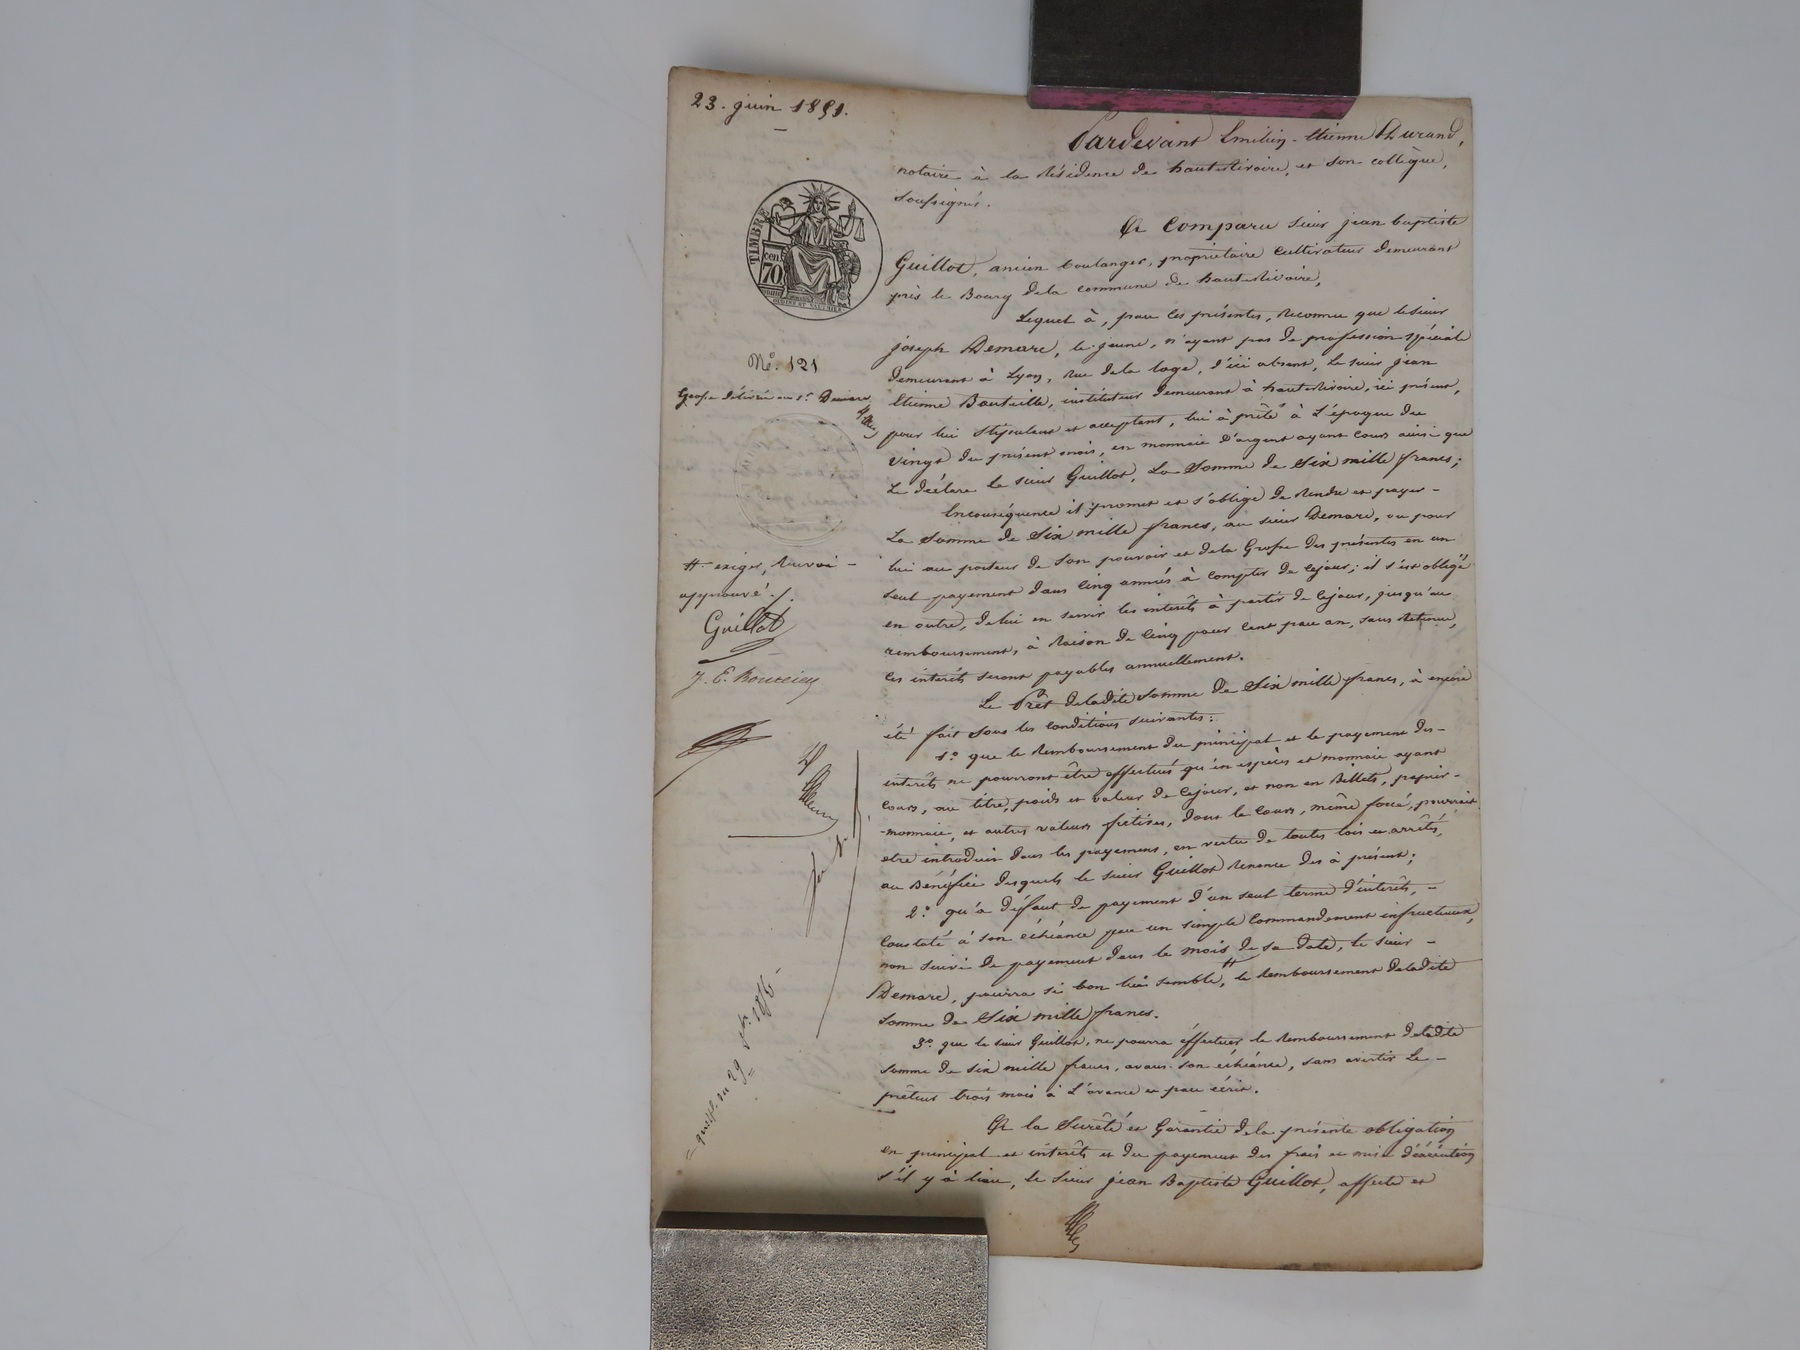 23. juin 1851.
Pardevant Emilien-Etienne Durand,
notaire à la Résidence de hauteRivoire, et son collègue,
soussignés.
A Comparu Sieur jean baptiste
Guillot, ancien boulanger, propriétaire cultivateur demeurant
près le Bourg dela commune de hauteRivoire,
Lequel à, par ces présentes, Reconnu que lesieur
joseph Demare, le jeune, n'ayant pas de profession spéciale
demeurant à Lyon, Rue dela loge, d'ici absent, le sieur jean
Etienne Bouteille, instituteur demeurant à hauteRivoire, ici présent,
pour lui stipulant et acceptant, lui à prêté à L'époque du
vingt du présent mois, en monnaie d'argent ayant cours ainsi que
Le déclare le sieur Guillot, La Somme de Six mille francs;
Enconséquence il promet et s'oblige de Rendre et payer -
La Somme de Six mille francs, au sieur Demare, ou pour
lui au porteur de Son pouvoir et dela Grosse des présentes en un
seul payement dans cinq années à compter de cejour; il s'est obligé
en outre, delui en servir les intérêts à partir de cejour, jusqu'au
remboursement, à Raison de cinq pour cent par an, sans Retenue,
ces intérêts seront payables annuellement.
Le Prêt deladite Somme de Six mille francs, à encore
été fait sous les conditions suivantes:
1.º que le Remboursement du principal et le payement des -
intérêts ne pourront être effectués qu'en espèces et monnaie ayant
cours, au titre, poids et valeur de cejour, et non en Billets, papier-
-monnaie, et autres valeurs fictives, dont le cours, même forcé, pourrait
etre introduit dans les payemens, en vertu de toutes lois et arrêtés,
au Bénéfice desquels le sieur Guillot Renonce dès à présent;
2.º qu'à défaut de payement d'un seul terme d'intérêts, -
constaté à son échéance par un simple Commandement infructueux,
non suivi de payement dans le mois de sa date, le sieur -
Demare, pourra si bon lui semble, # le Remboursement deladite
Somme de Six mille francs.
3.º que le sieur Guillot, ne pourra éffectuer le Remboursement deladite
somme de six mille francs, avant son échéance, sans avertir Le -
prêteur trois mois à L'avance et par écrit.
A la Sureté et Garantie dela présente obligation
en principal et intérêts et du payement des frais et mise d'éxécution
s'il y à lieu, le sieur jean Baptiste Guillot, affecte et
TIMBRE
cen
70
Nº. 121
Grosse délivrée au sr. Demare
# exiger, Renvoi -
approuvé ./.
Guillot
J. E.